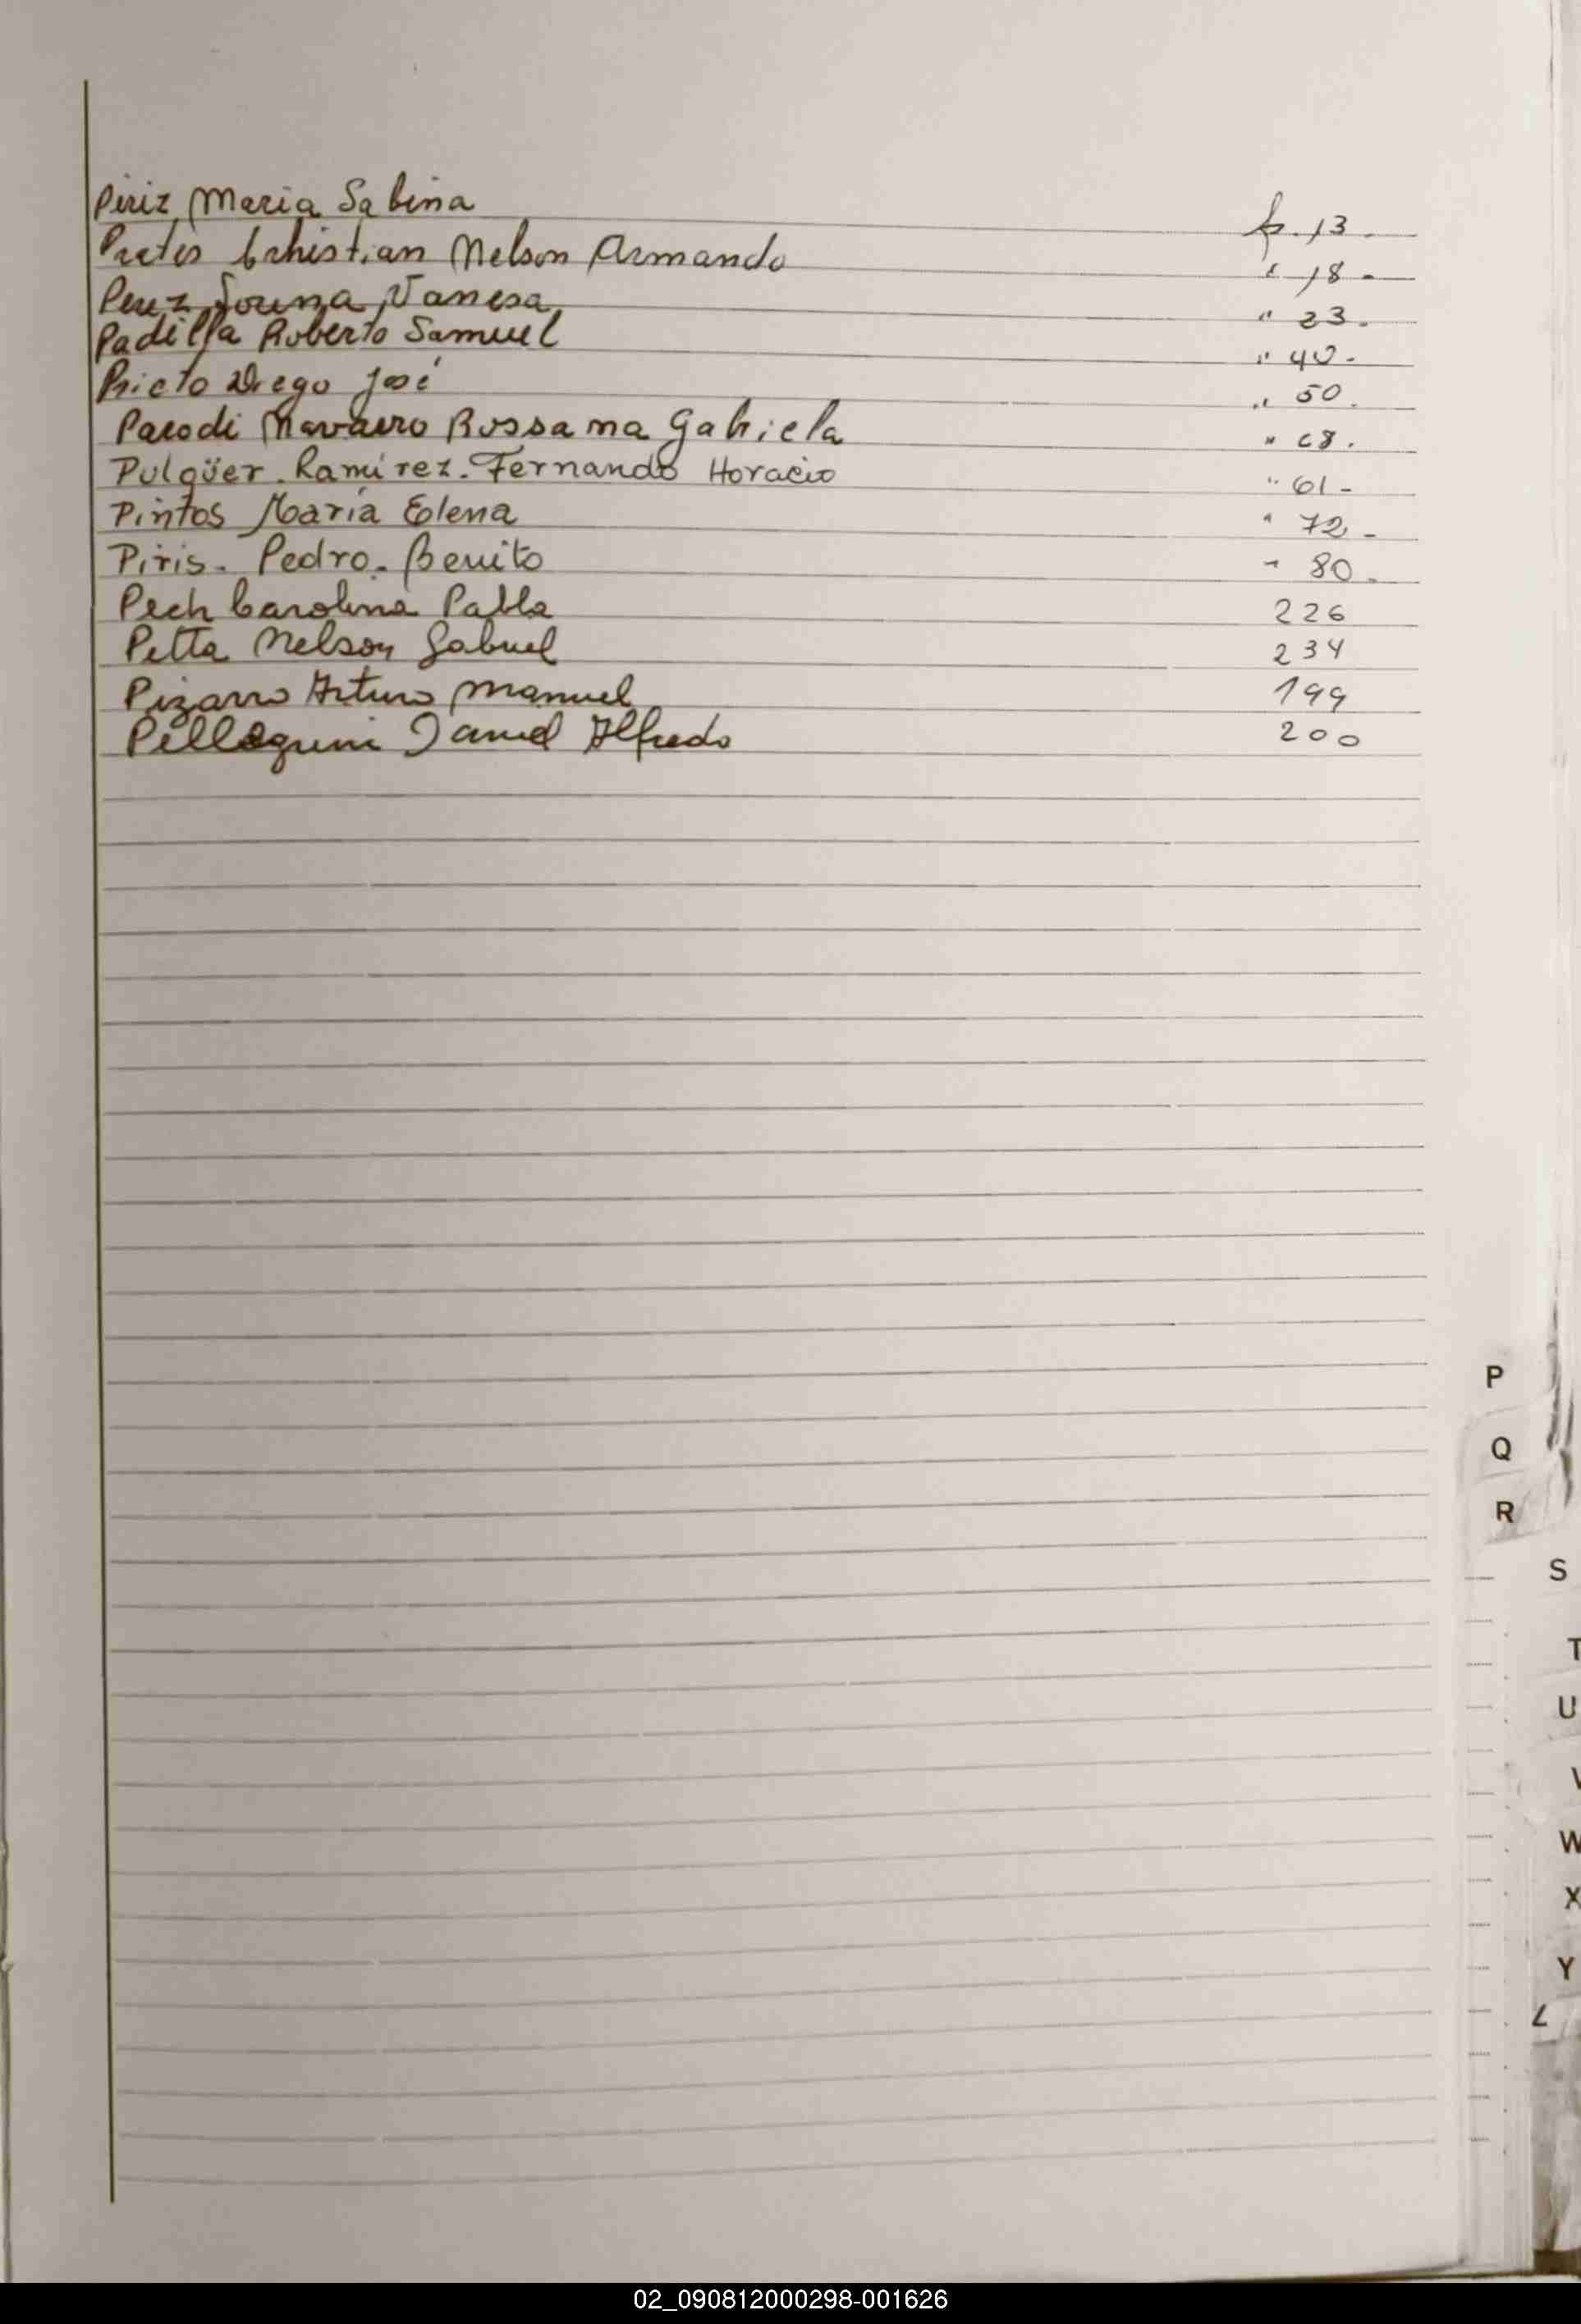 Piriz Maria Sabina f. 13.
Prates Cahistian Nelson Armando " 18-
Perez Souza Vanesa " 23.
Padilla Roberto Samuel " 40-
Prieto Diego José " 50.
Parodi Navarro Rossana Gabriela " 68.
Pulgüer. Ramírez. Fernando Horacio " 61-
Pintos María Elena " 72-
Piris. Pedro. Benito - 80.
Pech Carolina Pabla 226
Petta Nelson Gabriel 234
Pizarro Arturo Manuel 199
Pellegrini Daniel Alfredo 200
P
Q
R
S
T
U
V
W
X
Y
Z
02_090812000298-001626